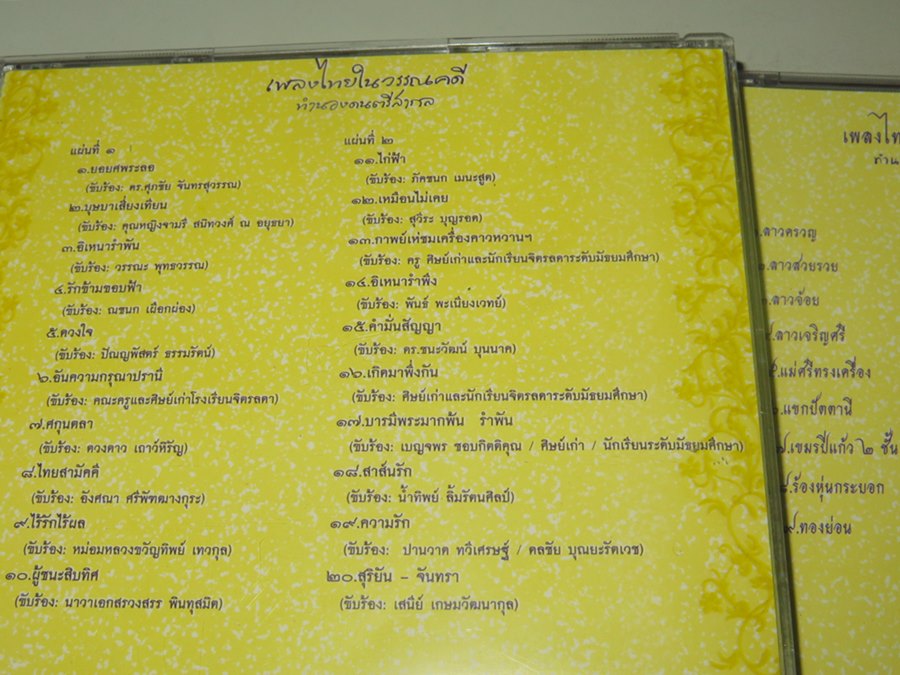 เพลงไทยในวรรณคดี
ทำนองดนตรีสากล
แผ่นที่ ๑
๑.ยอยศพระลอ
(ขับร้อง: ดร.ศุภชัย จันทรสุวรรณ)
๒.บุษบาเสี่ยงเทียน
(ขับร้อง: คุณหญิงจามรี สนิทวงศ์ ณ อยุธยา)
๓.อิเหนารำพัน
(ขับร้อง: วรรณะ พุทธวรรณ)
๔.รักข้ามขอบฟ้า
(ขับร้อง: ณชนก เผือกผ่อง)
๕.ดวงใจ
(ขับร้อง: ปัณญพัสตร์ ธรรมรัตน์)
๖.อันความกรุณาปรานี
(ขับร้อง: คณะครูและศิษย์เก่าโรงเรียนจิตรลดา)
๗.ศกุนตลา
(ขับร้อง: ดวงดาว เถาว์หิรัญ)
๘.ไทยสามัคคี
(ขับร้อง: อังศณา ศรีพัฑฒางกุระ)
๙.ไร้รักไร้ผล
(ขับร้อง: หม่อมหลวงขวัญทิพย์ เทวกุล)
๑๐.ผู้ชนะสิบทิศ
(ขับร้อง: นาวาเอกสรวงสรร พินทุสมิต)
แผ่นที่ ๒
๑๑.ไก่ฟ้า
(ขับร้อง: ภัคชนก เมนะสูต)
๑๒.เหมือนไม่เคย
(ขับร้อง: สุวิระ บุญรอด)
๑๓.กาพย์เห่ชมเครื่องคาวหวานฯ
(ขับร้อง: ครู ศิษย์เก่าและนักเรียนจิตรลดาระดับมัธยมศึกษา)
๑๔.อิเหนารำพึง
(ขับร้อง: พันธ์ พะเนียงเวทย์)
๑๕.คำมั่นสัญญา
(ขับร้อง: ดร.ชนะวัฒน์ บุนนาค)
๑๖.เกิดมาพึ่งกัน
(ขับร้อง: ศิษย์เก่าและนักเรียนจิตรลดาระดับมัธยมศึกษา)
๑๗.บารมีพระมากพ้น รำพัน
(ขับร้อง: เบญจพร ชอบกิตติคุณ / ศิษย์เก่า / นักเรียนระดับมัธยมศึกษา)
๑๘.สาส์นรัก
(ขับร้อง: น้ำทิพย์ ลิ้มรัตนศิลป์)
๑๙.ความรัก
(ขับร้อง: ปานวาด ทวีเศรษฐ์ / ดลชัย บุณยะรัตเวช)
๒๐.สุริยัน - จันทรา
(ขับร้อง: เสนีย์ เกษมวัฒนากุล)
เพลงไท
ทำน
.ลาวครวญ
.ลาวสวยรวย
.ลาวจ้อย
.ลาวเจริญศรี
.แม่ศรีทรงเครื่อง
.แขกปัตตานี
๗.เขมรปี่แก้ว ๒ ชั้น
๘.ร้องหุ่นกระบอก
๙.ทองย่อน